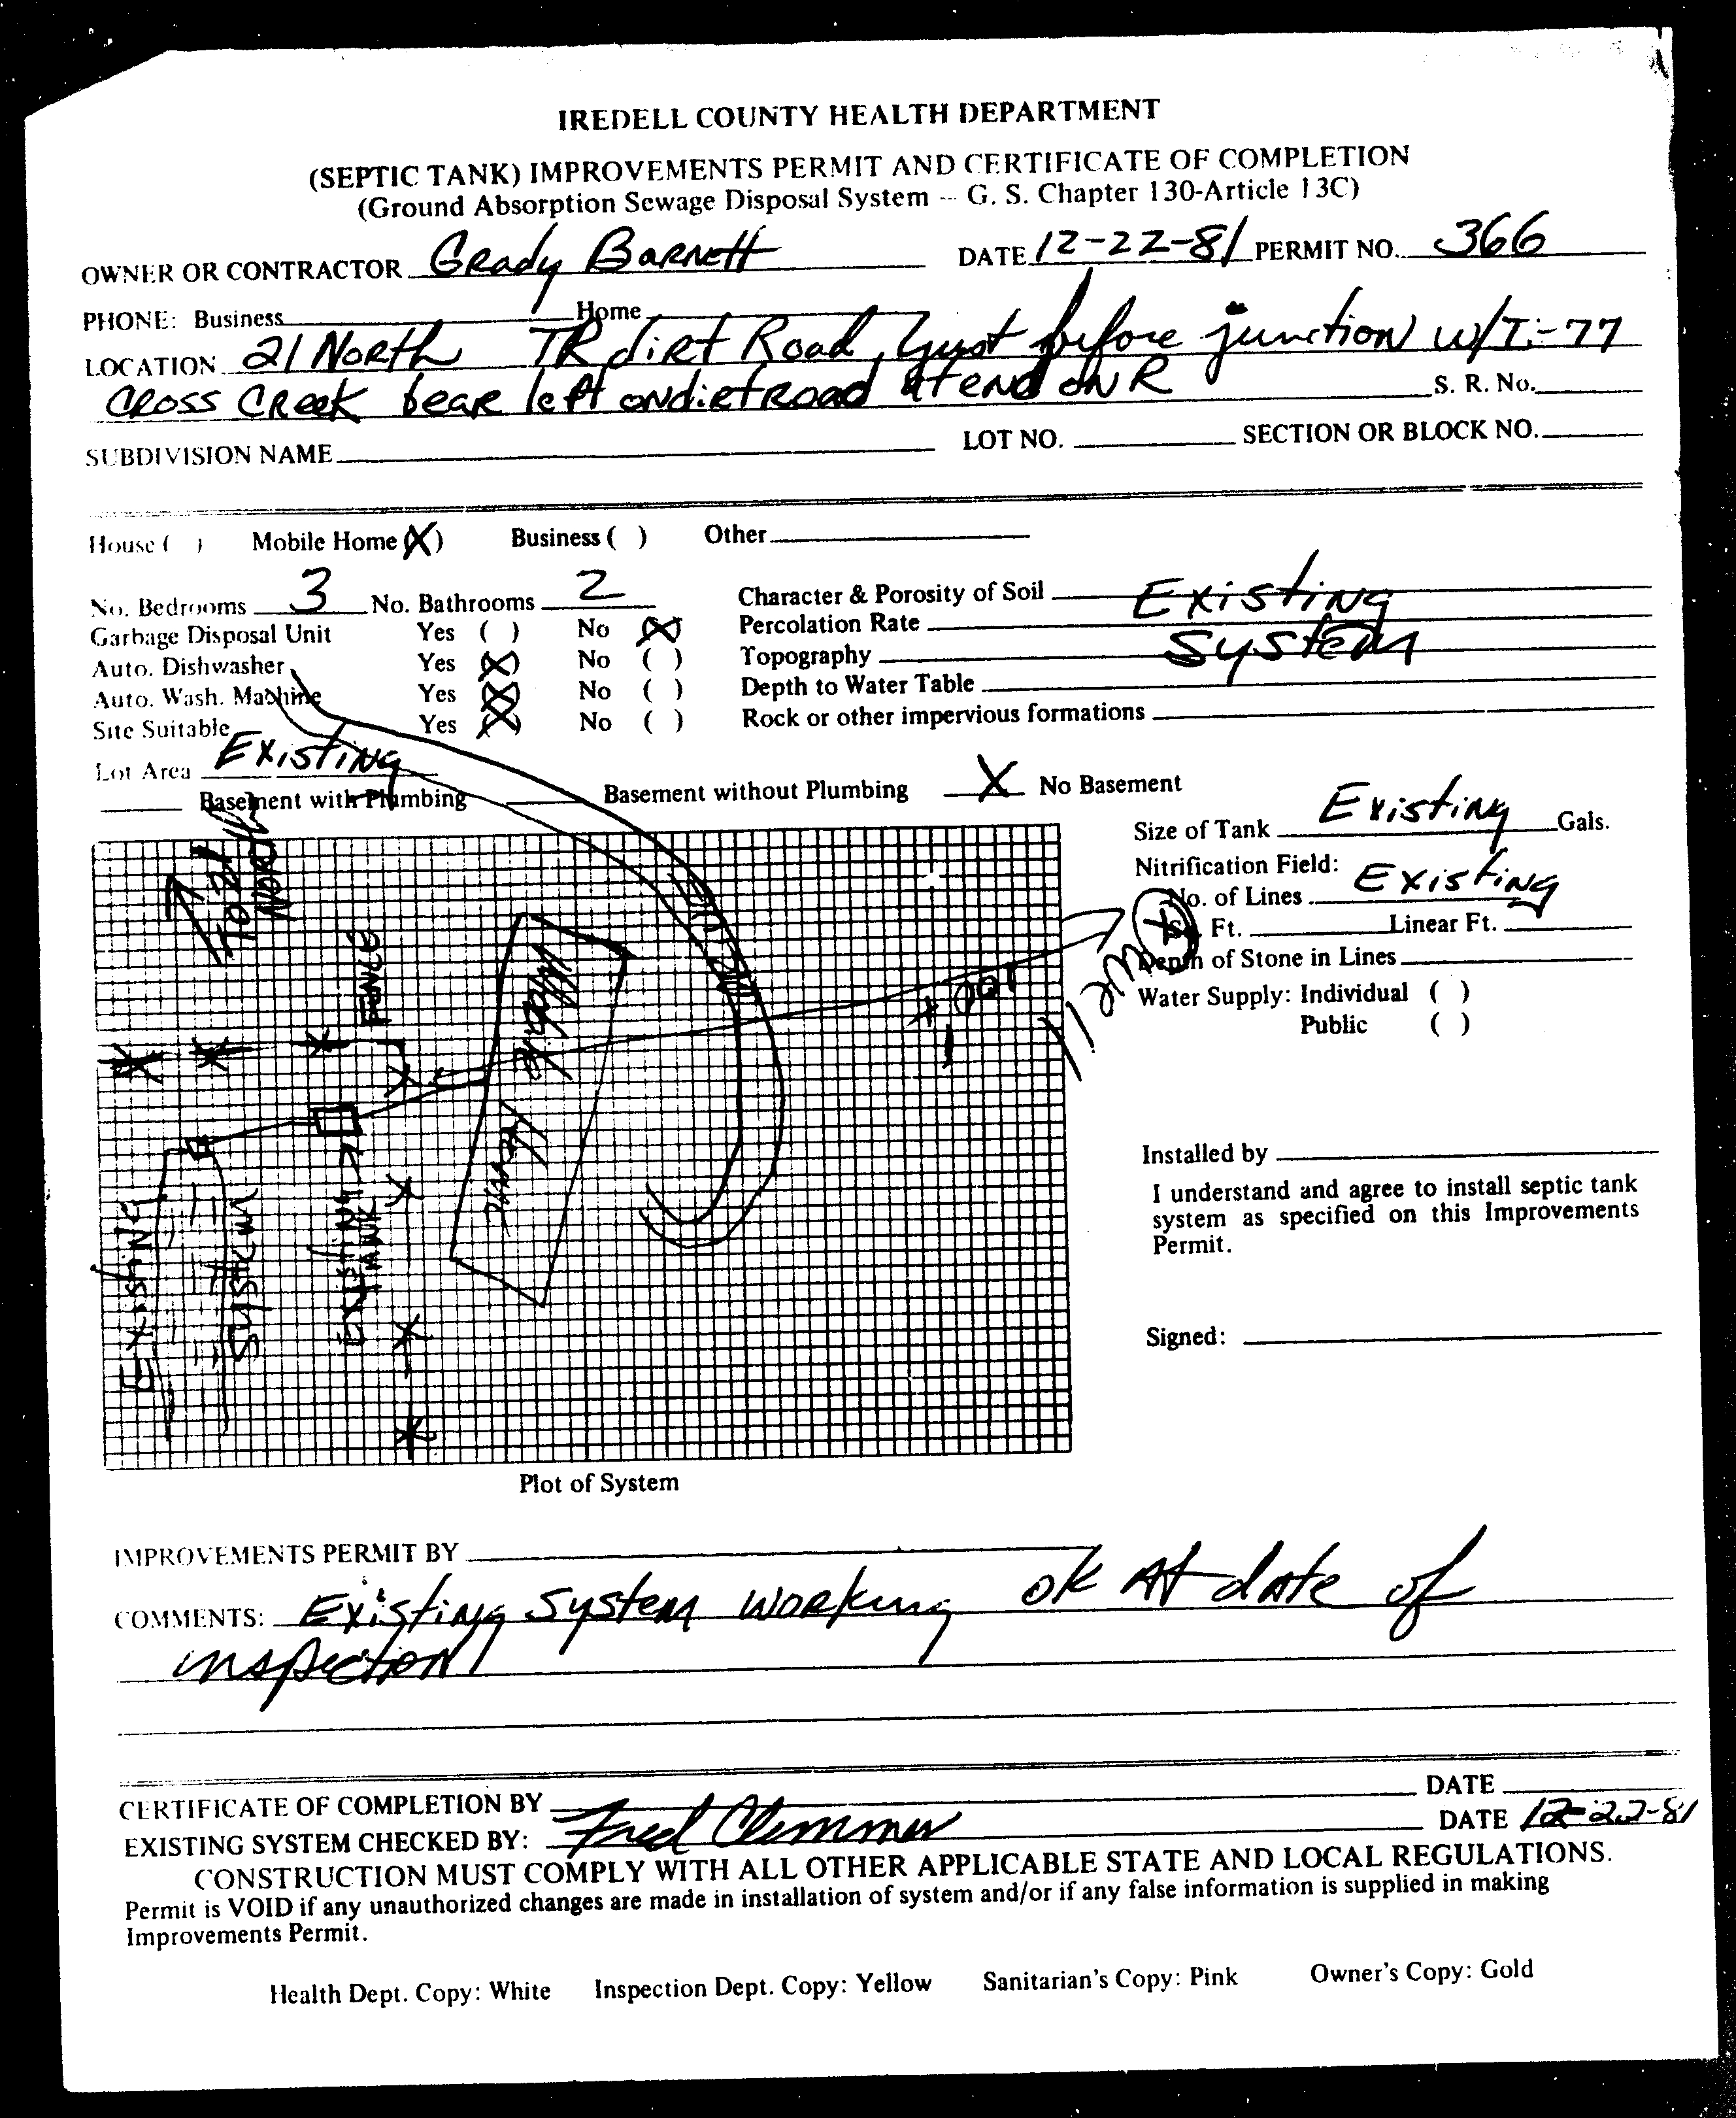 IREDELL COUNTY HEALTH DEPARTMENT
(SEPTIC TANK) IMPROVEMENTS PERMIT AND CERTIFICATE OF COMPLETION
(Ground Absorption Sewage Disposal System -- G. S. Chapter 130-Article 13C)
OWNER OR CONTRACTOR Grady Barnett DATE 12-22-81 PERMIT NO. 366
PHONE: Business Home
LOCATION 21 North TR dirt Road, Just before junction w/I-77
Cross Creek bear left on dirt road at end on R S. R. No.
SUBDIVISION NAME LOT NO. SECTION OR BLOCK NO.
House ( ) Mobile Home (X) Business ( ) Other
No. Bedrooms 3 No. Bathrooms 2 Character & Porosity of Soil Existing
Garbage Disposal Unit Yes ( ) No (X) Percolation Rate System
Auto. Dishwasher Yes (X) No ( ) Topography
Auto. Wash. Machine Yes (X) No ( ) Depth to Water Table
Site Suitable Yes (X) No ( ) Rock or other impervious formations
Lot Area Existing
Basement with Plumbing Basement without Plumbing X No Basement
Size of Tank Existing Gals.
Nitrification Field:
No. of Lines Existing
Sq. Ft. Linear Ft.
Depth of Stone in Lines
Water Supply: Individual ( )
Public ( )
To 21 North
Fence
Mobile Home
+ 100'
Well
Existing System
Existing Tank
Installed by
I understand and agree to install septic tank
system as specified on this Improvements
Permit.
Signed:
Plot of System
IMPROVEMENTS PERMIT BY
COMMENTS: Existing system working ok At date of
inspection
CERTIFICATE OF COMPLETION BY DATE
EXISTING SYSTEM CHECKED BY: Fred Clemmer DATE 12-22-81
CONSTRUCTION MUST COMPLY WITH ALL OTHER APPLICABLE STATE AND LOCAL REGULATIONS.
Permit is VOID if any unauthorized changes are made in installation of system and/or if any false information is supplied in making
Improvements Permit.
Health Dept. Copy: White Inspection Dept. Copy: Yellow Sanitarian's Copy: Pink Owner's Copy: Gold